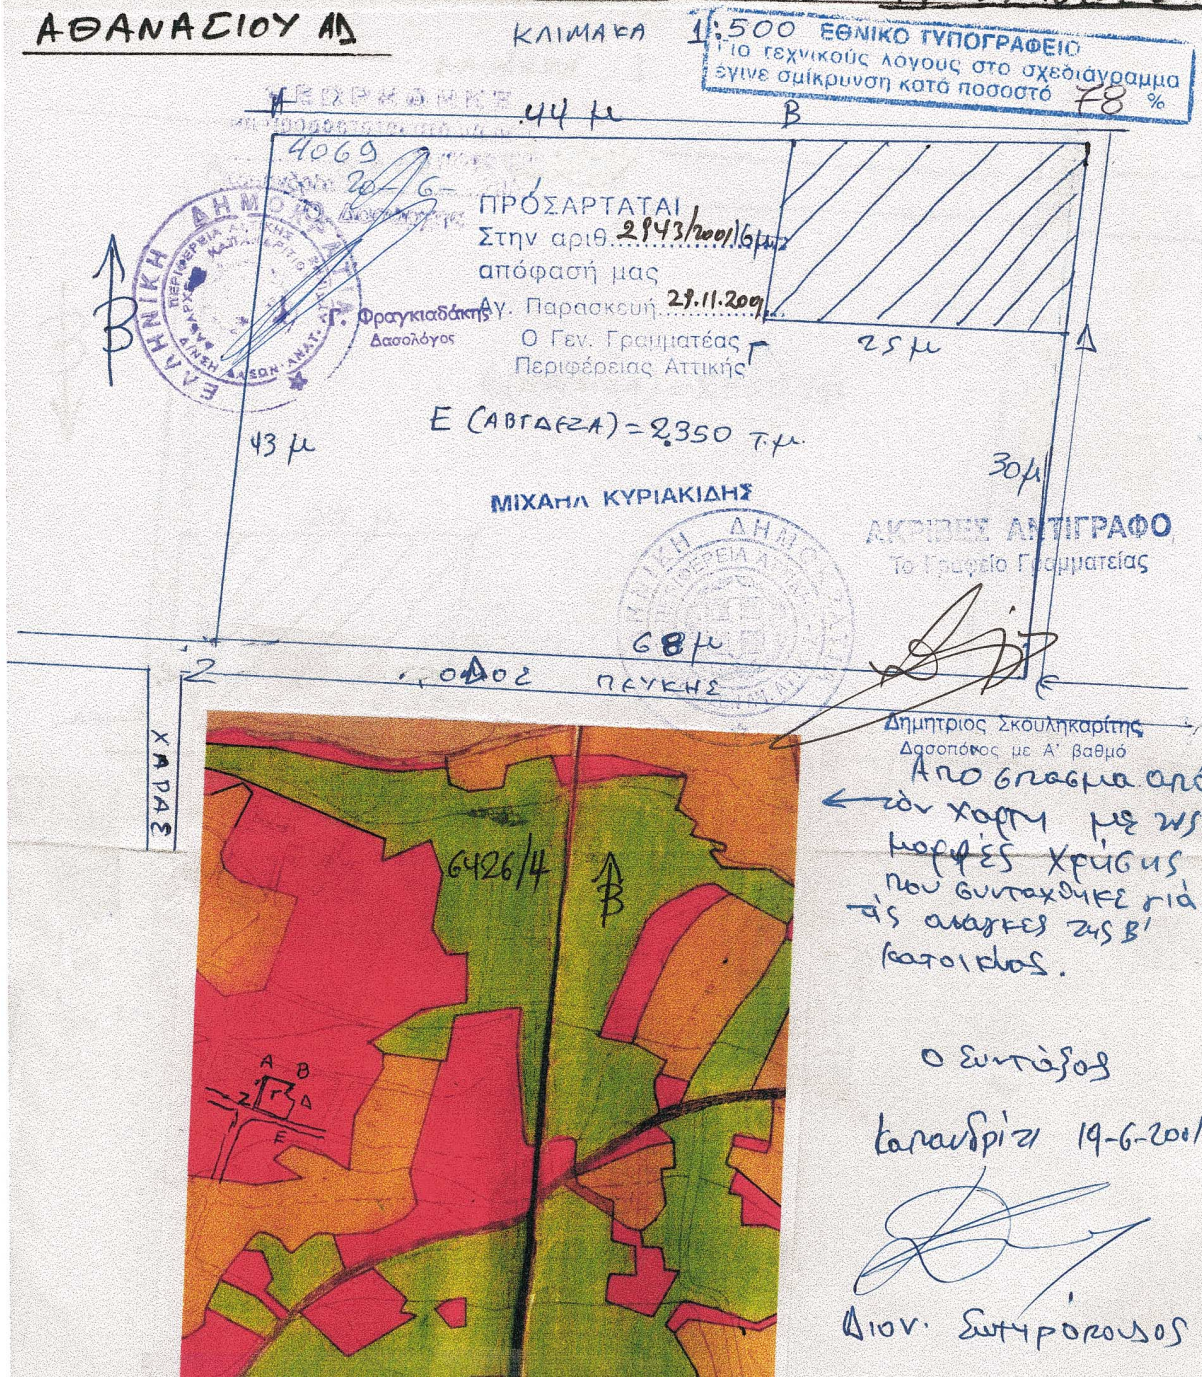 ΑΘΑΝΑΣΙΟΥ ΑΔ
ΚΛΙΜΑΚΑ 1:500
ΕΘΝΙΚΟ ΤΥΠΟΓΡΑΦΕΙΟ
Για τεχνικούς λόγους στο σχεδιάγραμμα
έγινε σμίκρυνση κατά ποσοστό 78 %
Α 44 μ Β
4069
20-6-
ΠΡΟΣΑΡΤΑΤΑΙ
Στην αριθ. 2943/2001/
απόφασή μας
Αγ. Παρασκευή 29.11.2001
Ο Γεν. Γραμματέας
Περιφέρειας Αττικής
Γ
25 μ
Δ
Β
ΕΛΛΗΝΙΚΗ ΔΗΜΟΚΡΑΤΙΑ
Γ. Φραγκιαδάκης
Δασολόγος
Ε (ΑΒΓΔΕΖΑ) = 2.350 τ.μ.
43 μ
30 μ
ΜΙΧΑΗΛ ΚΥΡΙΑΚΙΔΗΣ
ΑΚΡΙΒΕΣ ΑΝΤΙΓΡΑΦΟ
Το Γραφείο Γραμματείας
68 μ
Ζ
ΟΔΟΣ ΠΕΥΚΗΣ
Ε
ΧΑΡΑΣ
Δημήτριος Σκουληκαρίτης
Δασοπόνος με Α' βαθμό
Αποσπασμα από
τον χαρτη με τις
μορφές χρήσης
που συνταχθηκε γιά
τις αναγκες της Β'
κατοικιας.
6426/4
Β
Α Β
Γ
Ζ Δ
Ε
Ο Συντάξας
Καπανδρίτι 19-6-2001
Διον. Σωτηρόπουλος